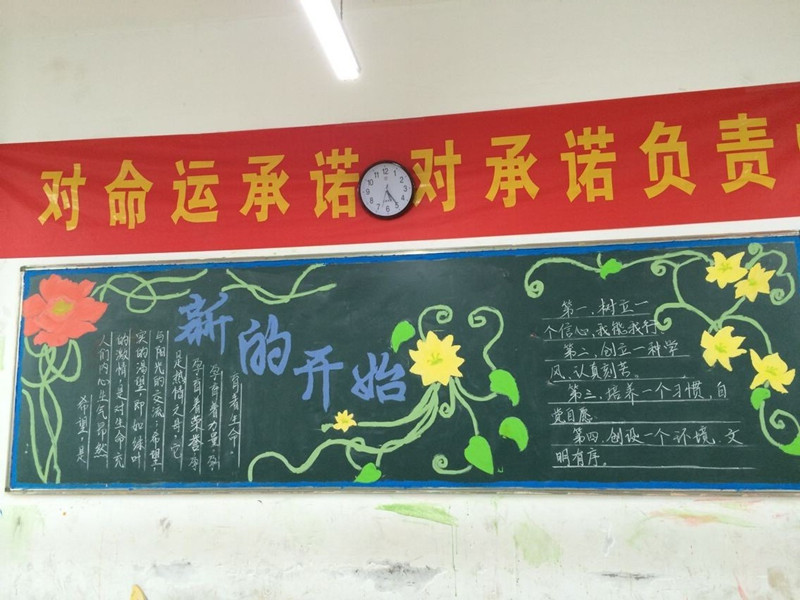 对命运承诺 对承诺负责
新的开始
希望，是
人们内心生气昂然
的激情，是对生命充
实的渴望，即如绿叶
与阳光的交流；希望
是热情之母，它
孕育着荣誉，孕
孕育着力量，孕
育着生命。
第一、树立一
个信心、我能我行
第二、创立一种学
风、认真刻苦。
第三、培养一个习惯，自
觉自愿
第四、创设一个环境，文
明有序。